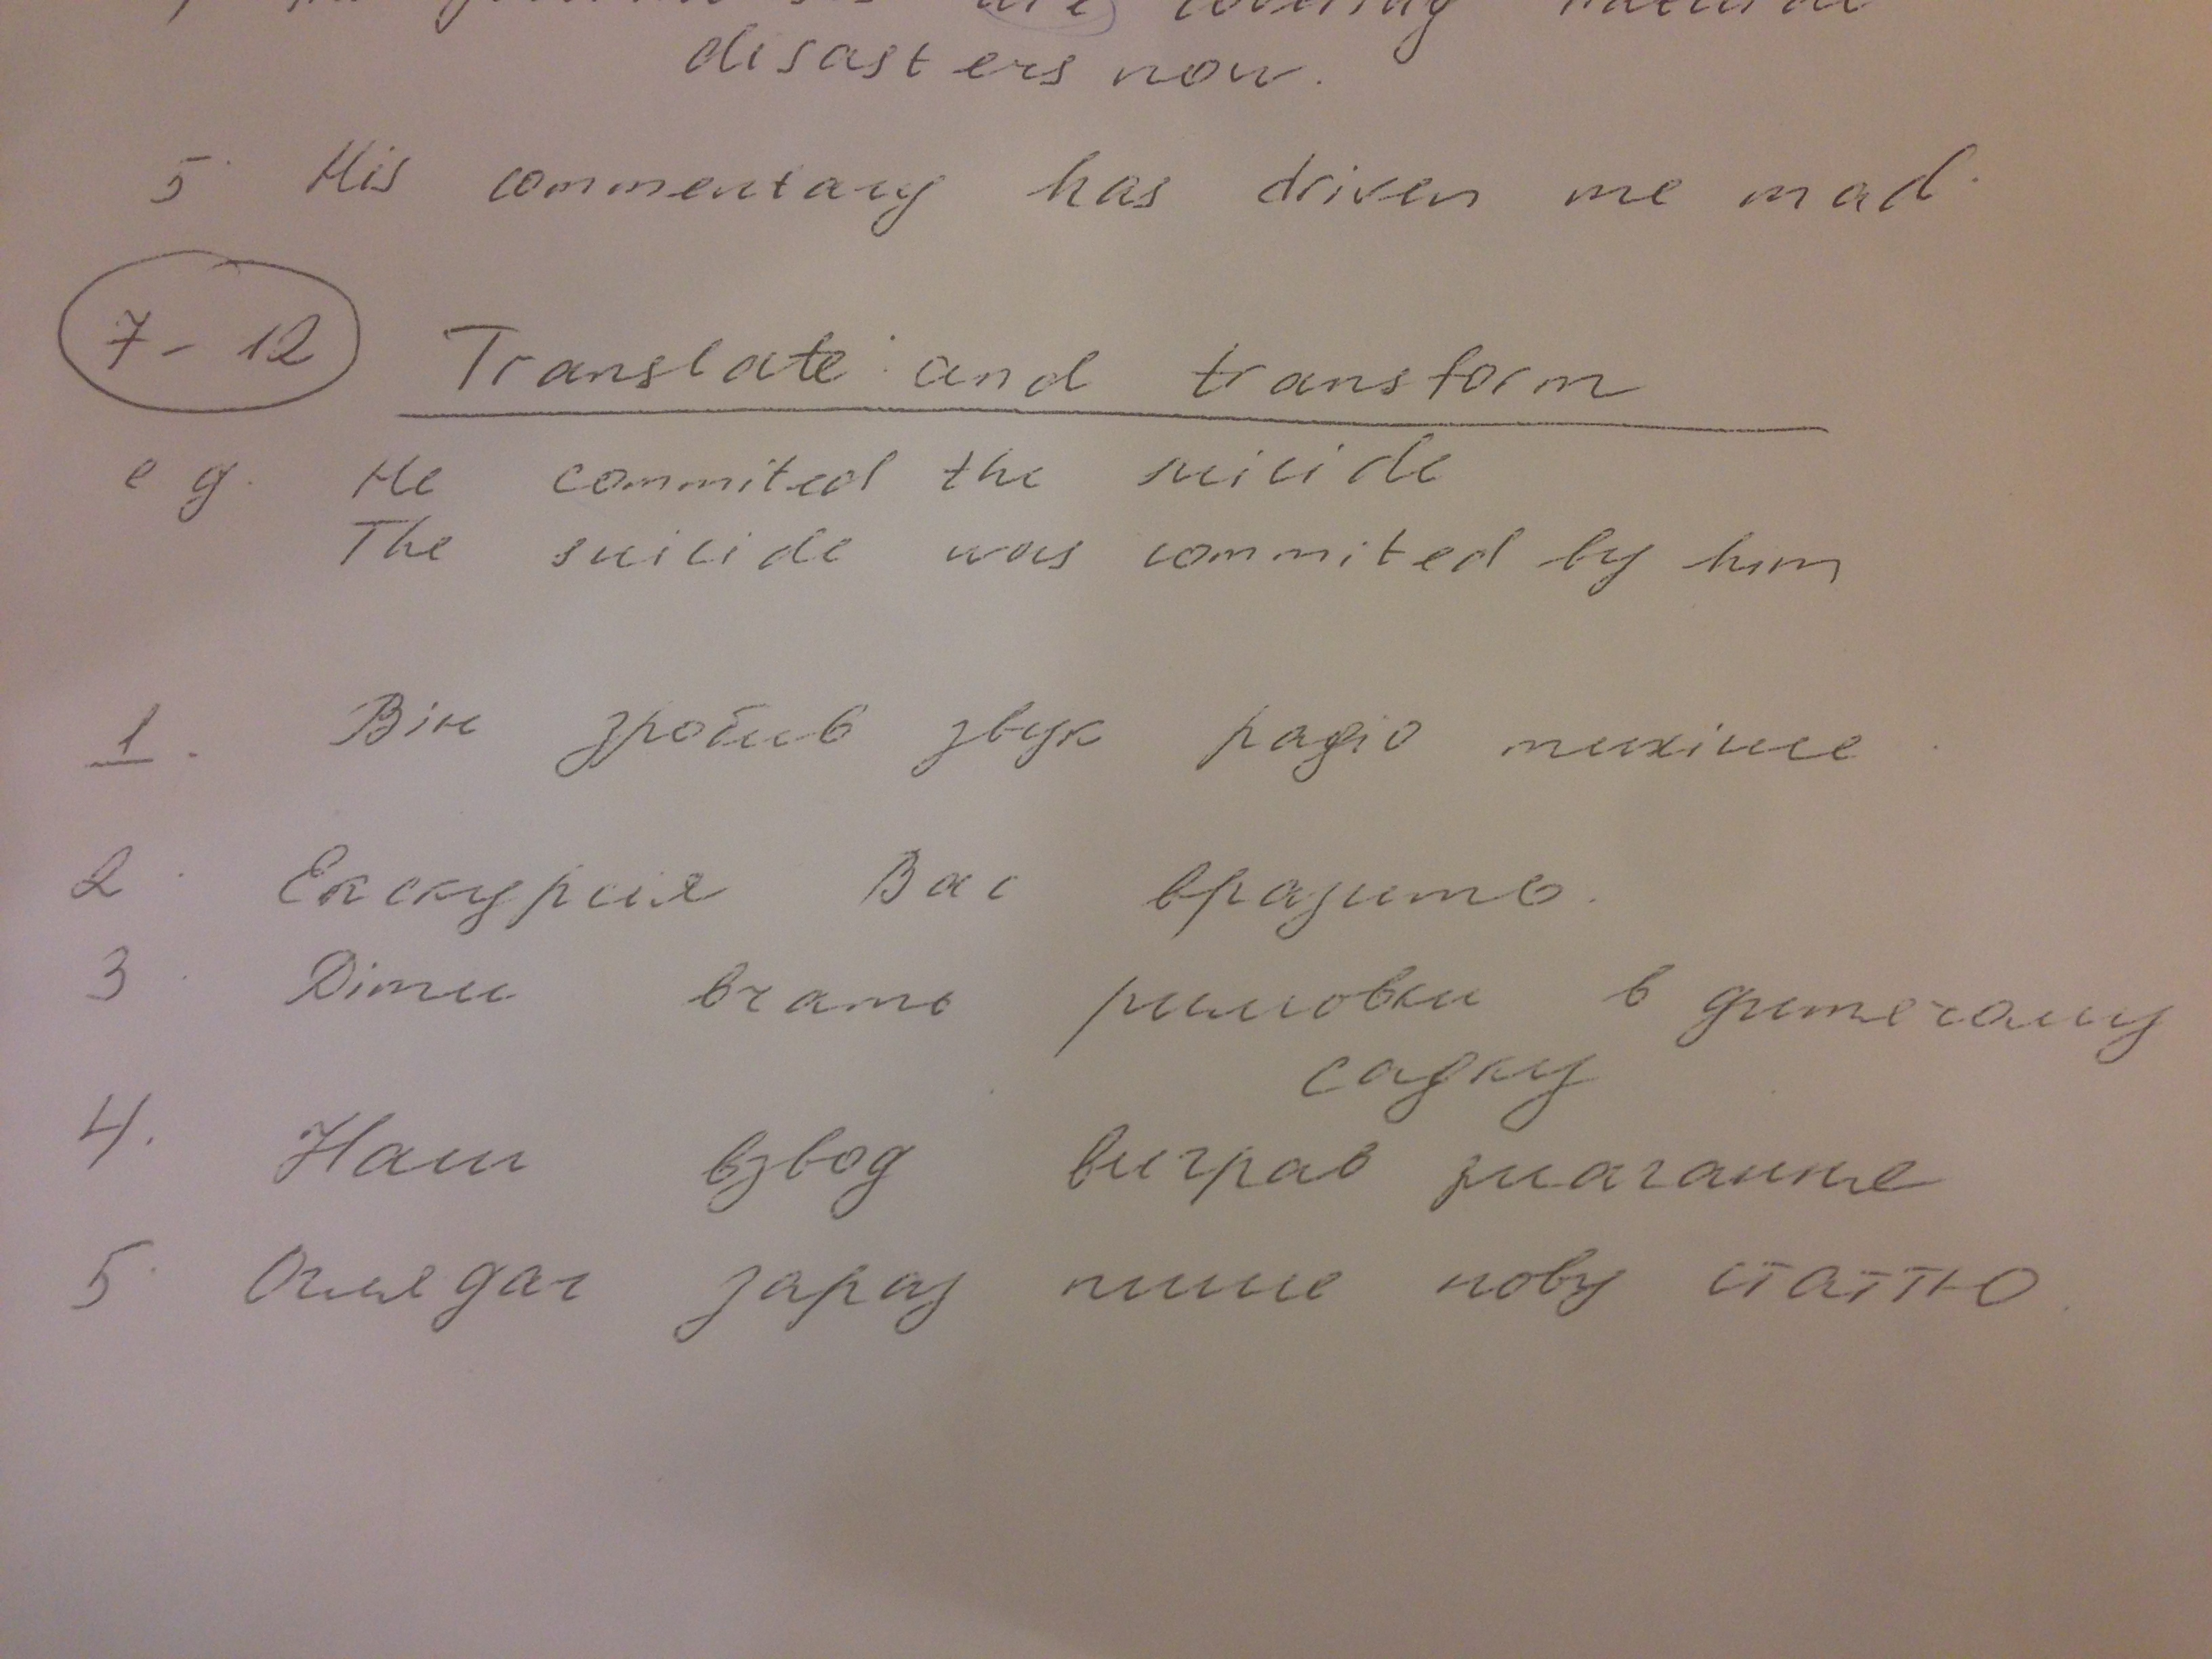 are covering natural
disasters now.
5 His commentary has driven me mad.
7-12 Translate and transform
e g. He commited the suicide
The suicide was commited by him
1. Він зробив звук радіо тихіше.
2. Екскурсія Вас вразить.
3. Діти вчать римовки в дитячому
садку
4. Наш взвод виграв змагання
5. Оглядач зараз пише нову статтю.